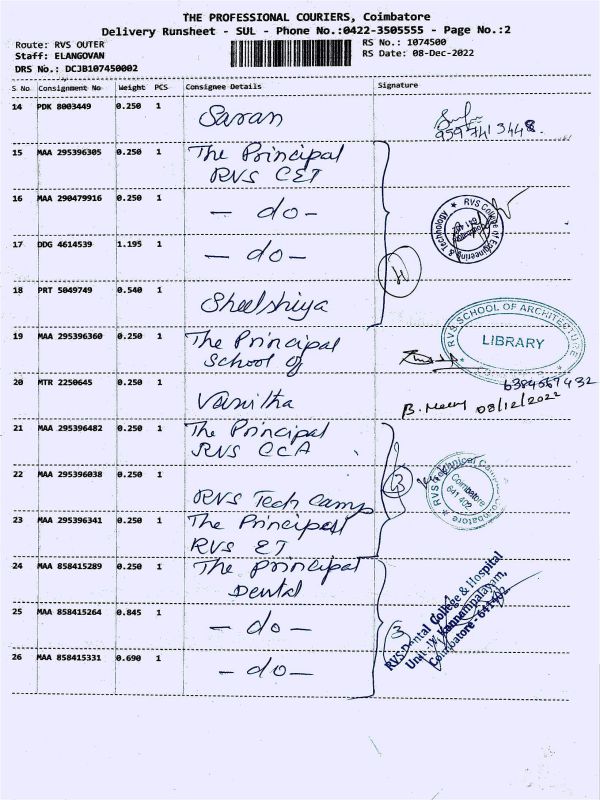 THE PROFESSIONAL COURIERS, Coimbatore
Delivery Runsheet - SUL - Phone No.:0422-3505555 - Page No.:2
Route: RVS OUTER
RS No.: 1074500
Staff: ELANGOVAN
RS Date: 08-Dec-2022
DRS No.: DCJB107450002
S No Consignment No Weight PCS Consignee Details Signature
14 PDK 8003449 0.250 1 Saran
9597413448.
15 MAA 295396305 0.250 1 The Principal
RVS CET
16 MAA 290479916 0.250 1 - do -
RVS College of Engineering & Technology ★
641 402
17 DDG 4614539 1.195 1 - do -
4
18 PRT 5049749 0.540 1 Sheelshiya
RVS SCHOOL OF ARCHITECTURE
LIBRARY
19 MAA 295396360 0.250 1 The Principal
School of
6384567432
20 MTR 2250645 0.250 1 Vanitha
08/12/2022
21 MAA 295396482 0.250 1 The Principal
RVS CCA
3
★ RVS Technical Coimbatore ★
Coimbatore
641 402
22 MAA 295396038 0.250 1 RVS Tech Camp
23 MAA 295396341 0.250 1 The Principal
RVS ET
24 MAA 858415289 0.250 1 The Principal
Dental
RVS Dental College & Hospital
Unit-IV, Kannampalayam,
Coimbatore - 641402
3
25 MAA 858415264 0.845 1 - do -
26 MAA 858415331 0.690 1 - do -